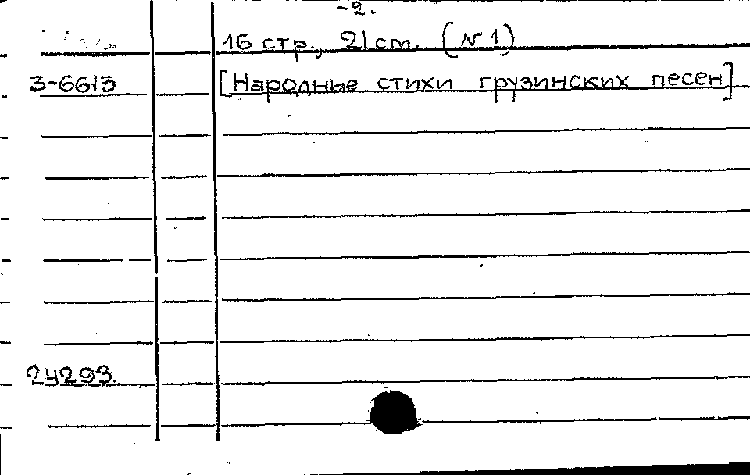 -2.
16 стр., 21 ст. (№1)
3-6613 [Народные стихи грузинских песен]
24293.